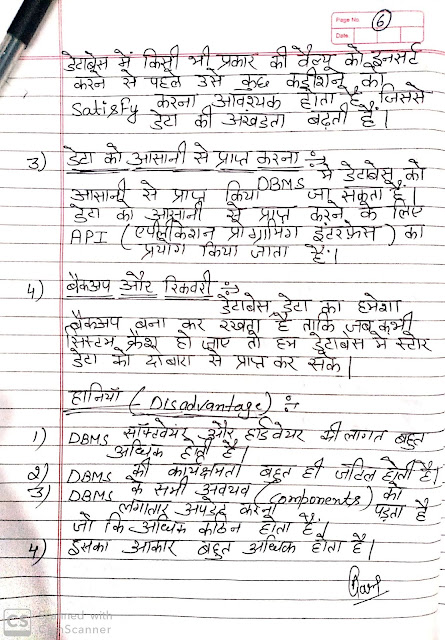 Page No. 6
Date
डेटाबेस में किसी भी प्रकार की वैल्यू को इनसर्ट
करने से पहले उसे कुछ कंडीशन को
Satisfy करना आवश्यक होता है, जिससे
डेटा की अखंडता बढ़ती है।
3) डेटा को आसानी से प्राप्त करना :-
DBMS में डेटाबेस को
आसानी से प्राप्त किया जा सकता है।
डेटा को आसानी से प्राप्त करने के लिए
API (एप्लीकेशन प्रोग्रामिंग इंटरफ़ेस) का
प्रयोग किया जाता है।
4) बैकअप और रिकवरी :-
डेटाबेस डेटा का हमेशा
बैकअप बना कर रखता है ताकि जब कभी
सिस्टम क्रैश हो जाए तो हम डेटाबेस में स्टोर
डेटा को दोबारा से प्राप्त कर सकें।
हानियाँ (Disadvantage) :-
1) DBMS सॉफ्टवेयर और हार्डवेयर की लागत बहुत
अधिक होती है।
2) DBMS की कार्यक्षमता बहुत ही जटिल होती है।
3) DBMS के सभी अवयव (Components) को
लगातार अपडेट करना पड़ता है
जो कि अधिक कठिन होता है।
4) इसका आकार बहुत अधिक होता है।
CS Scanned with
CamScanner